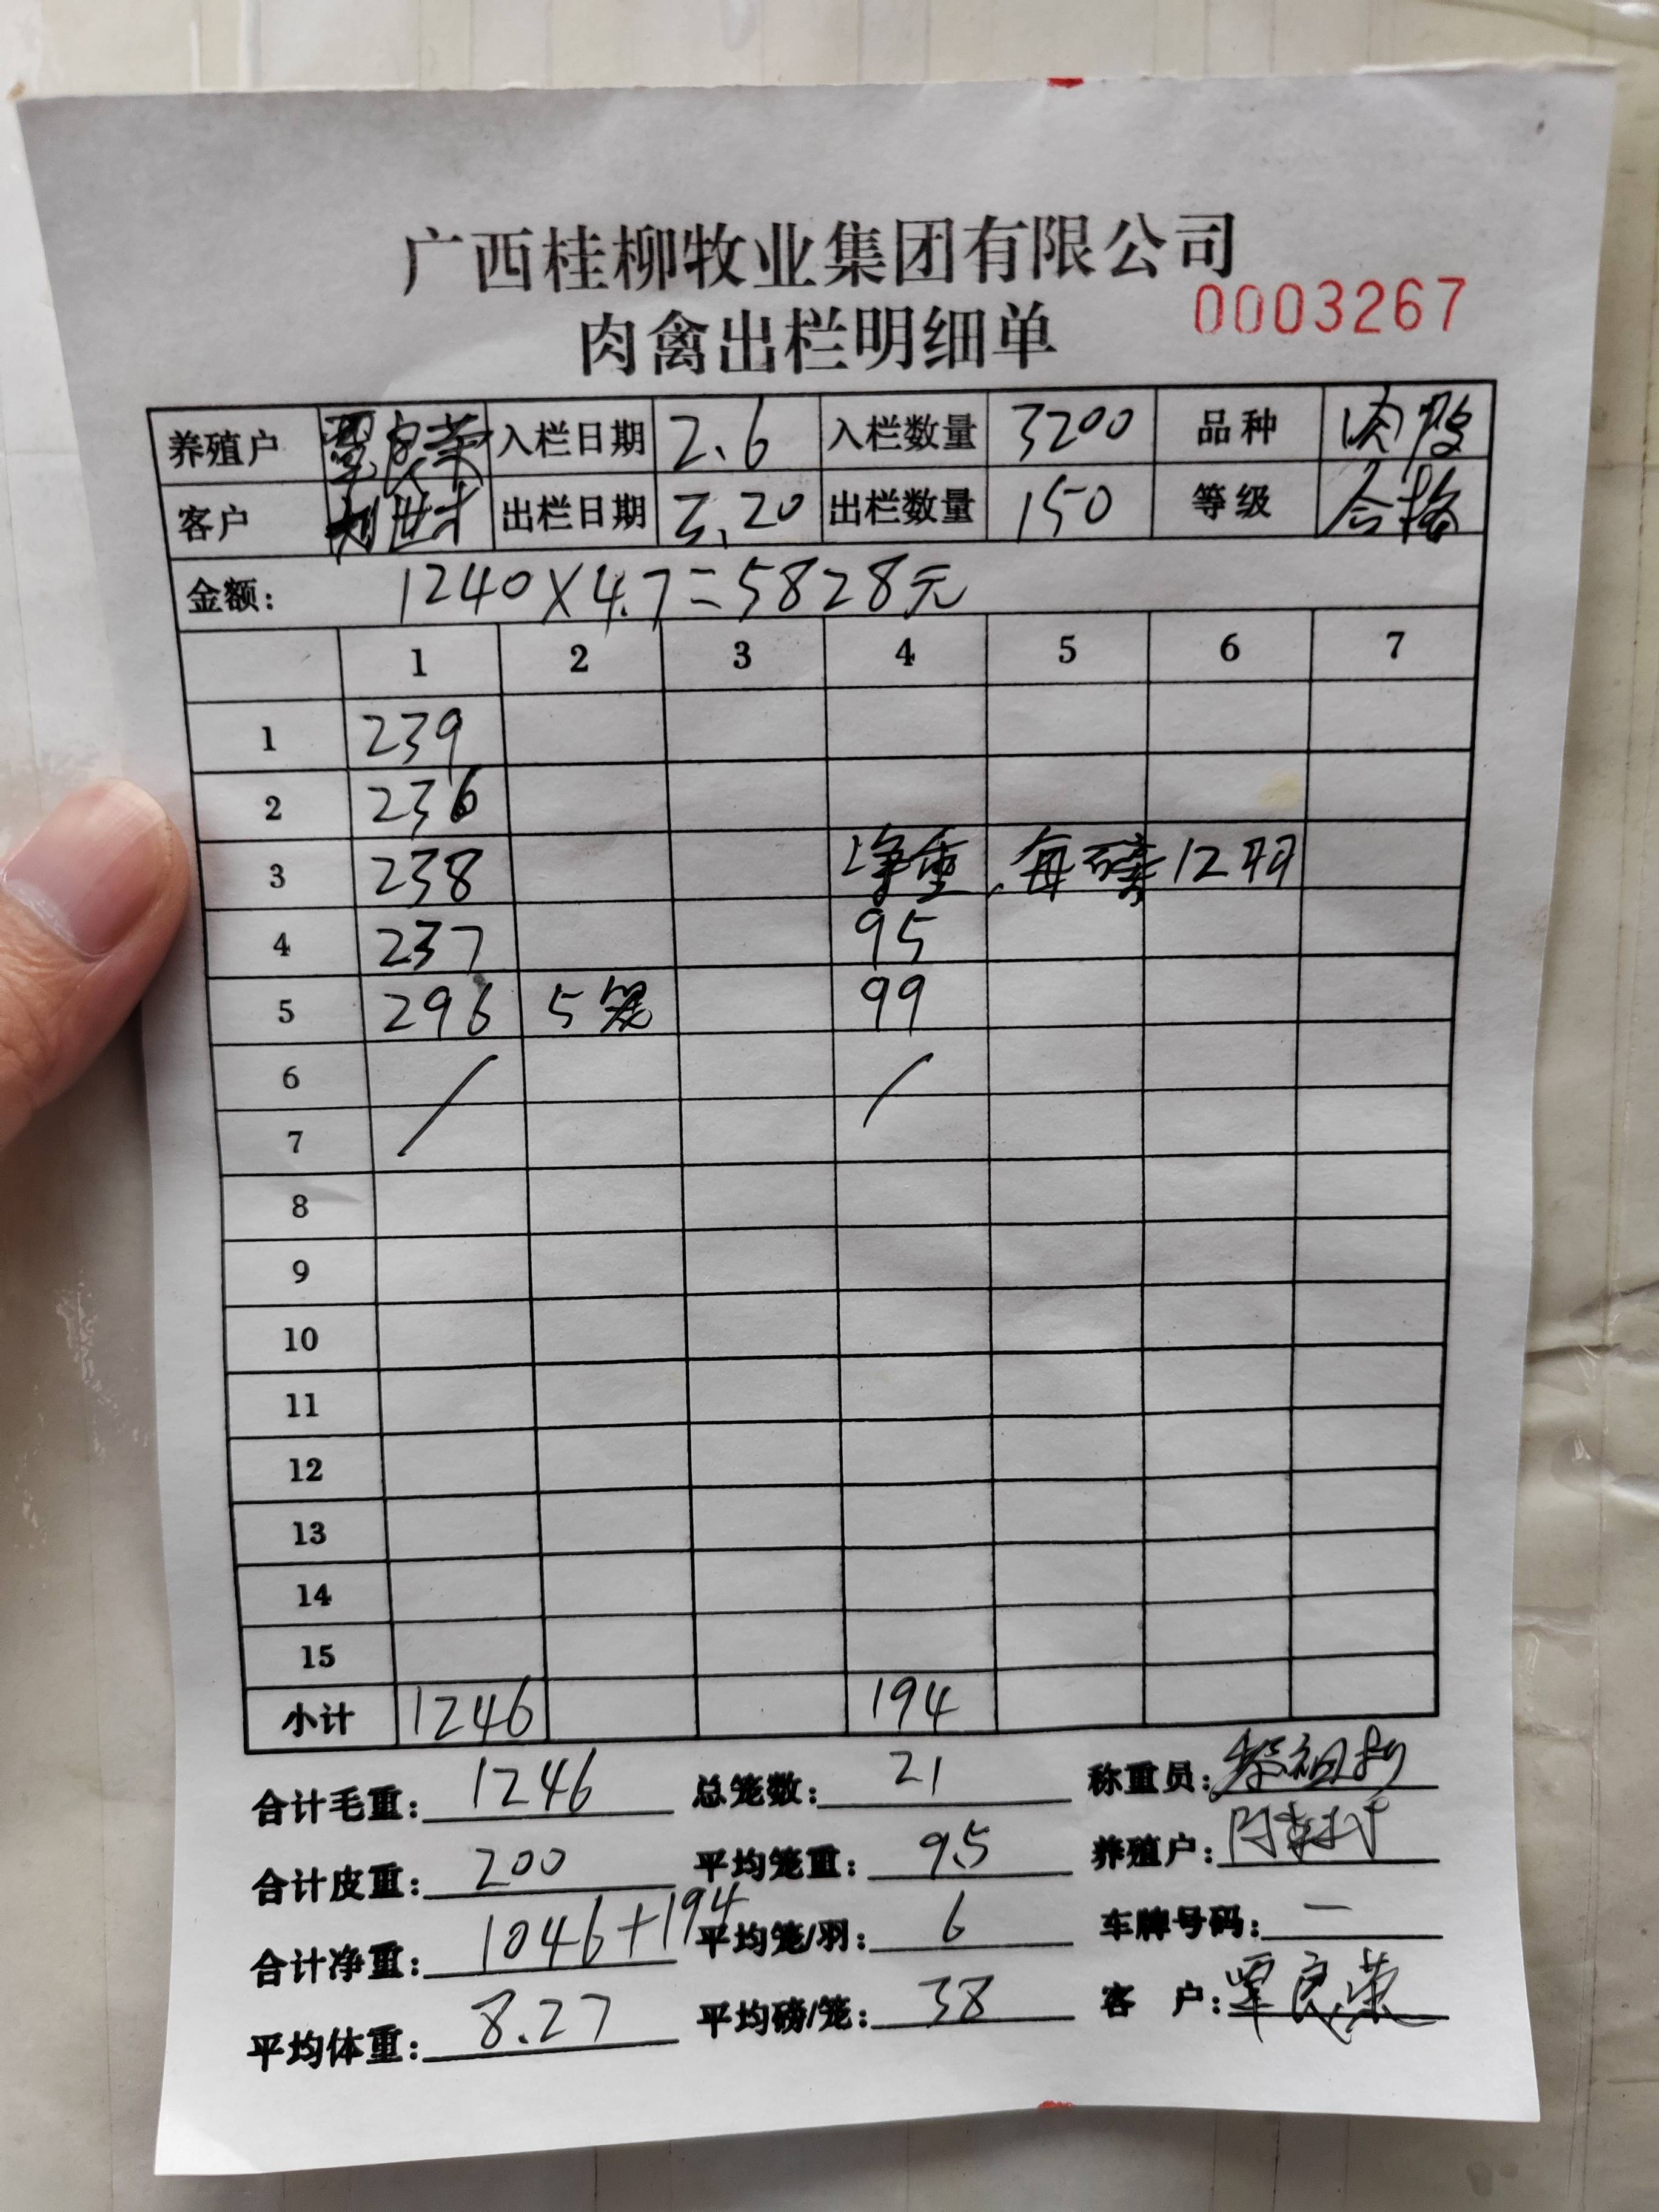 广西桂柳牧业集团有限公司
肉禽出栏明细单 0003267
养殖户 覃良荣 入栏日期 2.6 入栏数量 3200 品种 肉鸭
客户 出栏日期 3.20 出栏数量 150 等级 合格
金额: 1240×4.7=5828元
1 2 3 4 5 6 7
1 239
2 236
3 238 净重,每磅12羽
4 237 95
5 296 5笼 99
6 / /
7
8
9
10
11
12
13
14
15
小计 1246 194
合计毛重: 1246 总笼数: 21 称重员:
合计皮重: 200 平均笼重: 9.5 养殖户:
合计净重: 1046+194 平均笼/羽: 6 车牌号码: —
平均体重: 8.27 平均磅/笼: 38 客户: 覃良荣